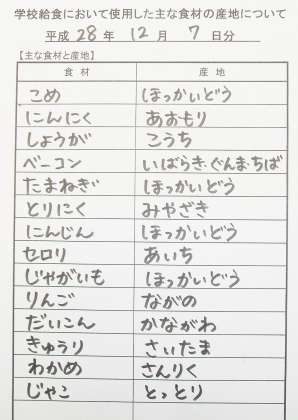 学校給食において使用した主な食材の産地について
平成 28 年 12 月 7 日分
【主な食材と産地】
食材 産地
こめ ほっかいどう
にんにく あおもり
しょうが こうち
ベーコン いばらき・ぐんま・ちば
たまねぎ ほっかいどう
とりにく みやざき
にんじん ほっかいどう
セロリ あいち
じゃがいも ほっかいどう
りんご ながの
だいこん かながわ
きゅうり さいたま
わかめ さんりく
じゃこ とっとり